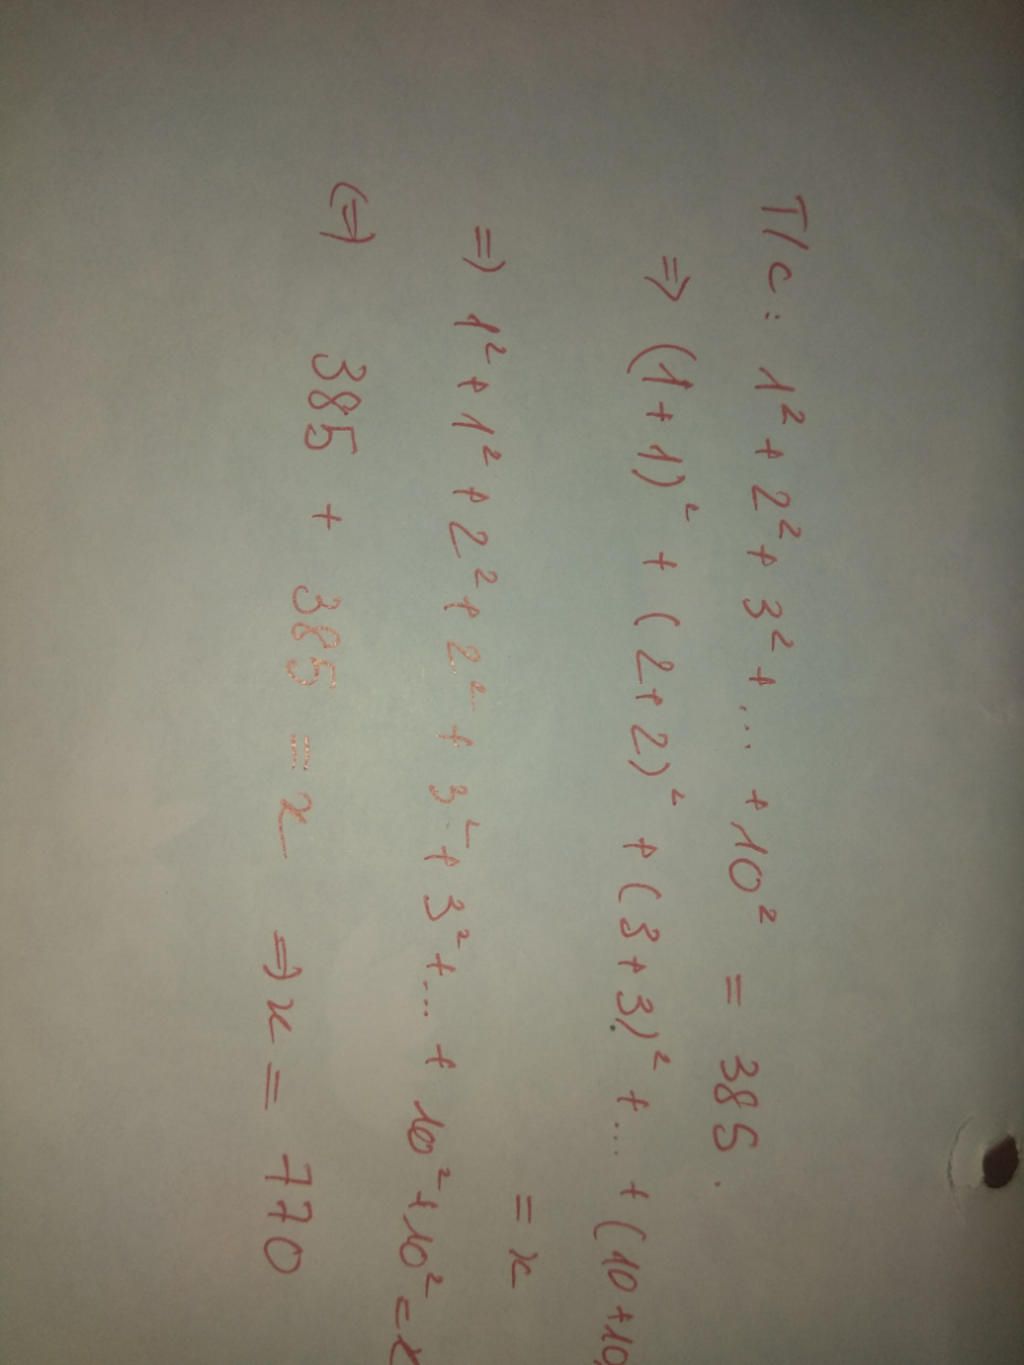 T/c: 1² + 2² + 3² + ... + 10² = 385.
=> (1+1)² + (2+2)² + (3+3)² + .... + (10+10
= x
=> 1² + 1² + 2² + 2² + 3² + 3² + ... + 10² + 10² = x
(=) 385 + 385 = x => x = 770